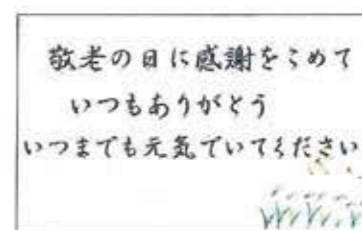 敬老の日に感謝をこめて
いつもありがとう
いつまでも元気でいてください